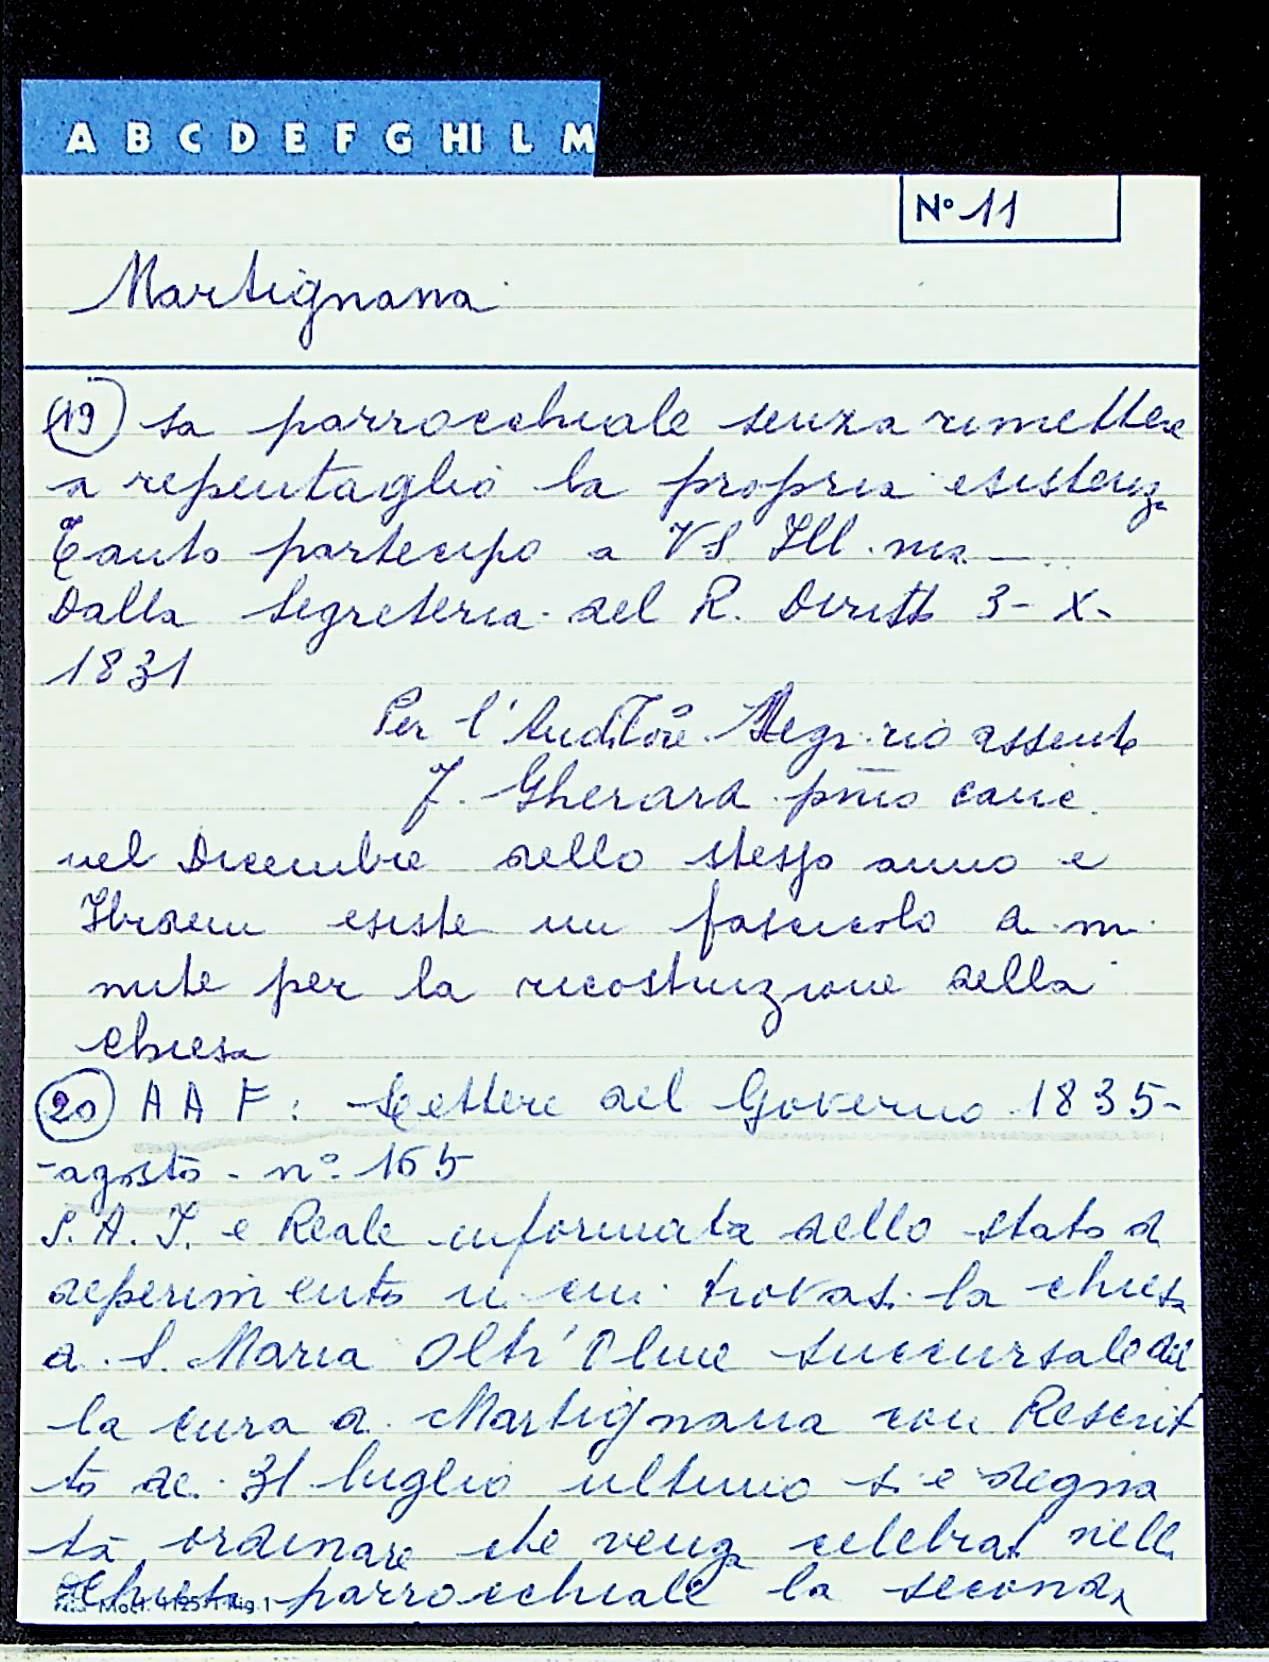 A B C D E F G HI L M
N° 11
Martignana
(19) sa parrocchiale senza rimettere
a repentaglio la propria esistenza
Tanto partecipo a VS Ill.ma
Dalla Segreteria del R. Diritto 3 - X -
1831
Per l'Auditore Segr.rio assente
J. Gherard pmo
nel Dicembre dello stesso anno e
Ibidem esiste un fascicolo di mi
nute per la ricostruzione della
chiesa
(20) A A F: Lettere del Governo 1835 -
- agosto - n° 165
S. A. I. e Reale informata dello stato di
deperimento in cui trovasi la chiesa
di S. Maria Oltr'Olme succursale del
la cura di Martignana con Rescrit
to de 31 luglio ultimo si è degna
ta ordinare che venga celebrat nella
chiesa parrocchiale la seconda